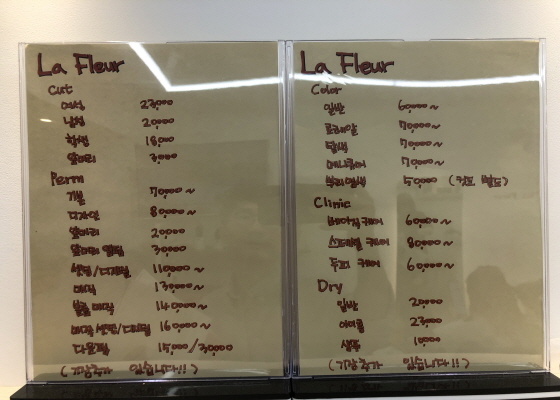 La Fleur
Cut
여성 23,000
남성 20,000
학생 18,000
앞머리 3,000
Perm
기본 70,000~
디자인 80,000~
앞머리 20,000
앞머리 열펌 30,000
셋팅/디지털 110,000~
매직 130,000~
볼륨 매직 140,000~
매직 셋팅/디지털 160,000~
다운펌 15,000/30,000
(기장추가 있습니다!!)
La Fleur
Color
일반 60,000~
로레알 70,000~
탈색 70,000~
매니큐어 70,000~
뿌리염색 50,000 (컷트 별도)
Clinic
베이직 케어 60,000~
스페셜 케어 80,000~
두피 케어 60,000~
Dry
일반 20,000
아이롱 23,000
샴푸 10,000
(기장추가 있습니다!!)